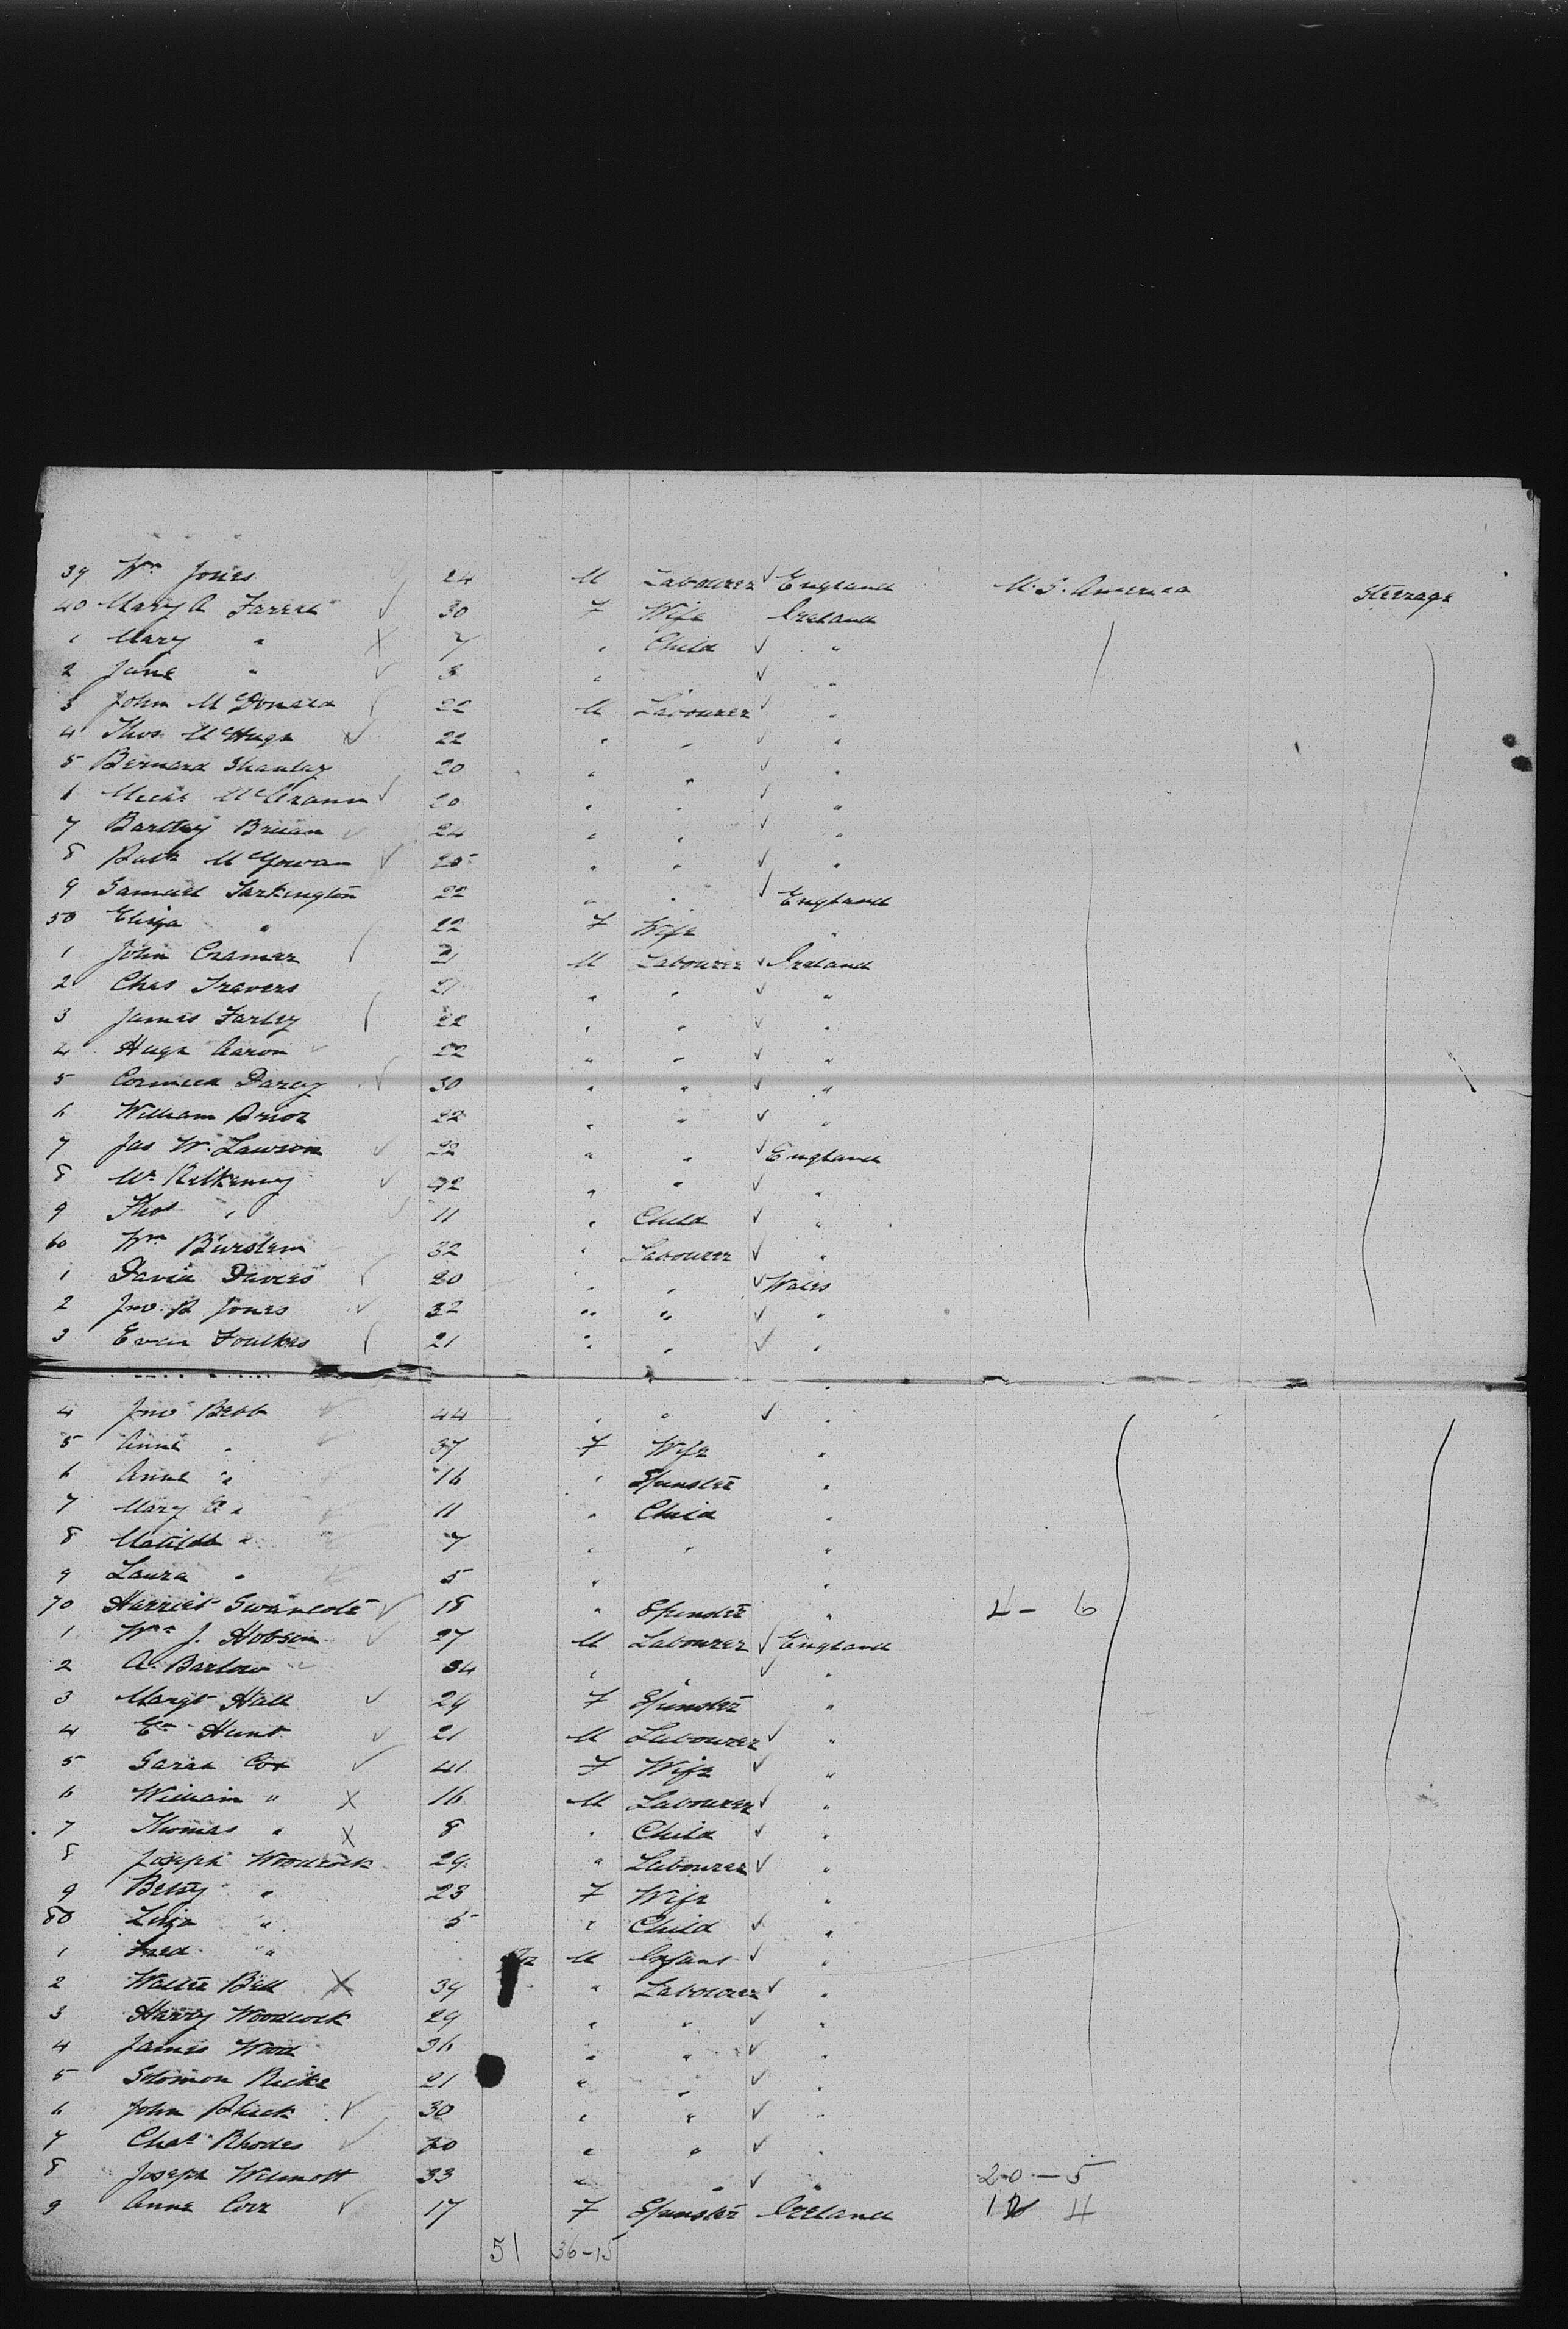 39 Wm Jones 24 M Labourer England U.S. America Steerage
40 Mary A Farrell 30 F Wife Ireland
1 Mary " 7 " Child "
2 Jane " 3 " "
3 John McDonald 22 M Labourer "
4 Thos McHugh 22 " " "
5 Bernard Shanley 20 " " "
6 Michl 20 " " "
7 Bartley 24 " " "
8 McGowan 25 " " "
9 Samuel Tarkington 22 " " England
50 Eliza " 22 F Wife "
1 John Cramer 21 M Labourer Ireland
2 Chas Travers 21 " " "
3 James Farley 22 " " "
4 Hugh Aaron 22 " " "
5 Darcy 30 " " "
6 William Prior 22 " " "
7 Jas W. Lawson 22 " " England
8 Kilkenny " " "
9 Thos " 11 " Child "
60 Wm Burslem 32 " Labourer "
1 David Davies 20 " " Wales
2 Jno. R Jones 32 " " "
3 Evan Foulkes 21 " " "
4 Jno Bebb 44 " " "
5 Anne " 37 F Wife "
6 Anne " 16 " Spinster "
7 Mary E " 11 " Child "
8 Matilda " 7 " " "
9 Laura " 5 " "
70 Harriet 18 " Spinster " 4 - 6
1 Wm J. Hobson 27 M Labourer England
2 A. Barlow 34 " " "
3 Margt Hall 29 F Spinster "
4 Hunt 21 M Labourer "
5 Sarah Cox 41 F Wife "
6 William " 16 M Labourer "
7 Thomas " 8 " Child "
8 Joseph Woodcock 29 " Labourer "
9 Betsy " 23 F Wife "
80 " 5 " Child "
1 Fred " M Infant "
2 Walter Bell 39 " Labourer "
3 Harry Woodcock 29 " " "
4 James Wood 36 " " "
5 Solomon 21 " " "
6 John 30 " " "
7 Chas Rhodes 30 " " "
8 Joseph Wilmott 33 " " " 20 - 5
9 Anne 17 F Spinster Ireland 4
51 36-15